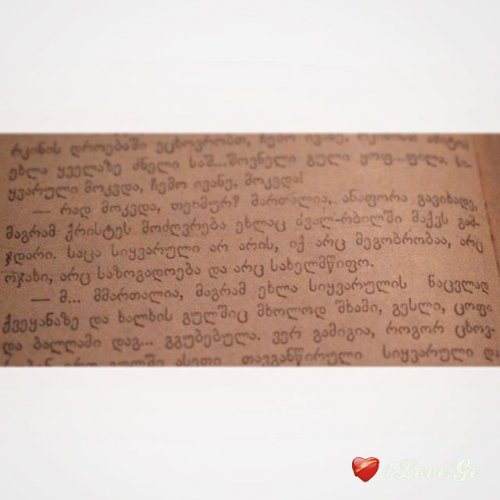 რკინის დროებაში ვცხოვრობთ, ჩემო ივანე,
ეხლა ყველაზე ძნელი საშ...შოვნელი გულა ყოფ...ფილა სი-
ყვარული მოკვდა, ჩემო ივანე, მოკვდა!
— რად მოკვდა, თეიმურ? მართალია, ანაფორა გავიხადე,
მაგრამ ქრისტეს მოძღვრება ეხლაც ძვალ-რბილში მაქვს გამ-
ჯდარი. საცა სიყვარული არ არის, იქ არც მეგობრობაა, არც
ოჯახი, არც საზოგადოება და არც სახელმწიფო.
— მ... მმართალია, მაგრამ ეხლა სიყვარულის ნაცვლად
ქვეყანაზე და ხალხის გულშიც მხოლოდ შხამი, გესლი, ცოფი
და ბალღამი დაგ... გგუბებულა. ვერ გამიგია, როგორ ცხოვ-
ასეთი თავგანწირული სიყვარული
1Love.Ge